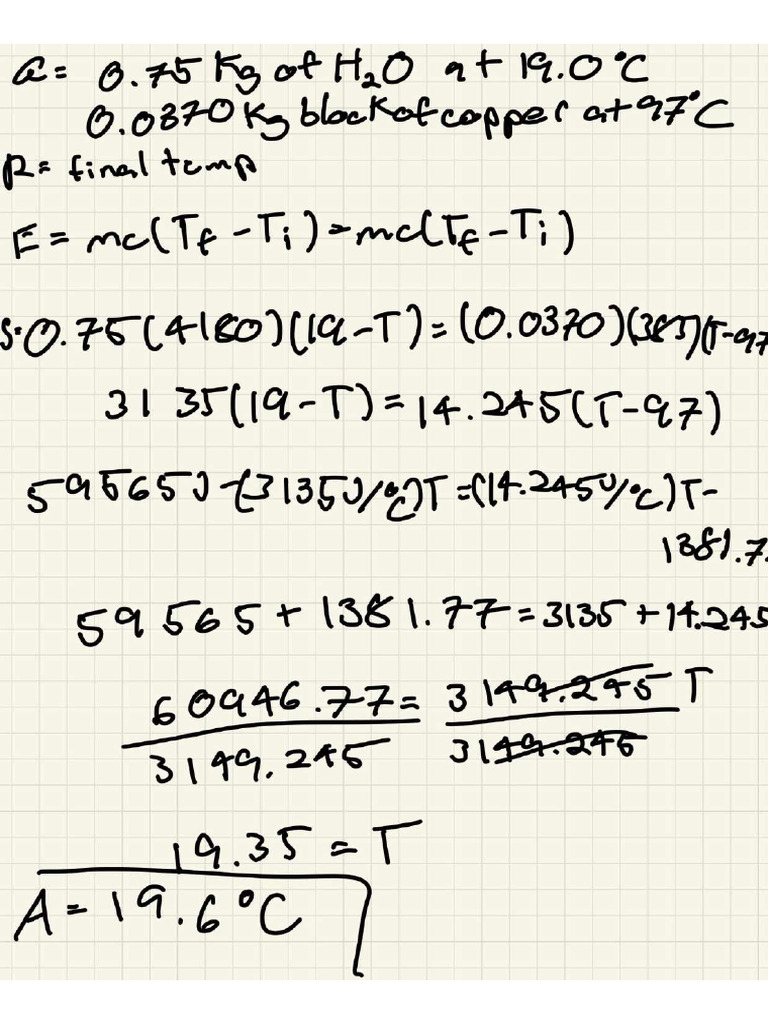 G = 0.75 Kg of H₂O at 19.0°C
0.0370 Kg block of copper at 97°C
R = final temp
E = mc(Tf - Ti) = mc(Tf - Ti)
S. 0.75(4180)(19-T) = (0.0370)(385)(T-97
3135(19-T) = 14.245(T-97)
59565J - (3135J/°C)T = (14.245J/°C)T -
1381.7
59565 + 1381.77 = 3135 + 14.245
60946.77 = 3149.245 T
3149.245 3149.245
19.35 = T
A = 19.6°C